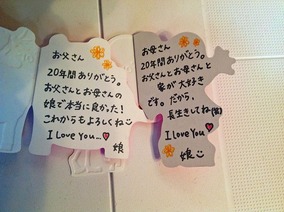 お父さん
20年間ありがとう。
お父さんとお母さんの
娘で本当に良かった!
これからもよろしくね
I Love You…♥
娘
お母さん
20年間ありがとう。
お父さんとお母さんと
家が大好き
です。だから、
長生きしてね(笑)
I Love You♥
娘